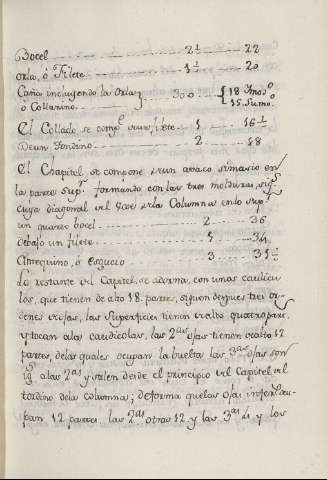 Bocel ---- 2½ ---- 22
orla, ó Filete ---- 1½ ---- 20
Caña incluyendo la Orla y ---- 300 ---- { 18 Imoº
ó Collarino ---- { 15 Sumo.
El Collado se compe vn filete. 1 ---- 16½
De un Tondino ---- 2 ---- 18
El Chapitel se compone de un abaco simasio en
la parte supr. formando con las tres molduras,
cuya diagonal es el doe de la Columna en lo supr
un quarto bocel ---- 2 ---- 36
debajo un filete ---- 1 ---- 34
Antequino, ó esgucio ---- 3 ---- 35½
Lo restante del Capitel, se adorna, con unas caulicu
los, que tienen de alto 18. partes, siguen despues tres or-
denes de ojas, las Superficies tienen de alto quatro partes,
y tocan a los caulicolas, las 2as ojas tienen de alto 12
partes, de las quales ocupan la buelta las 3as ojas son
igs a las 2as y salen desde el principio del Capitel del
tondino de la columnas; de forma que las ojas inferiores ocu-
pan 12 partes las 2as otras 12 y las 3as 4 y los